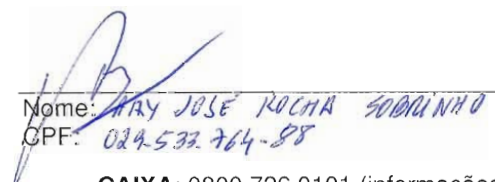 Nome: ARY JOSE ROCHA SOBRINHO
CPF: 029-533.764-88
CAIXA: 0800 726 0101 (informações